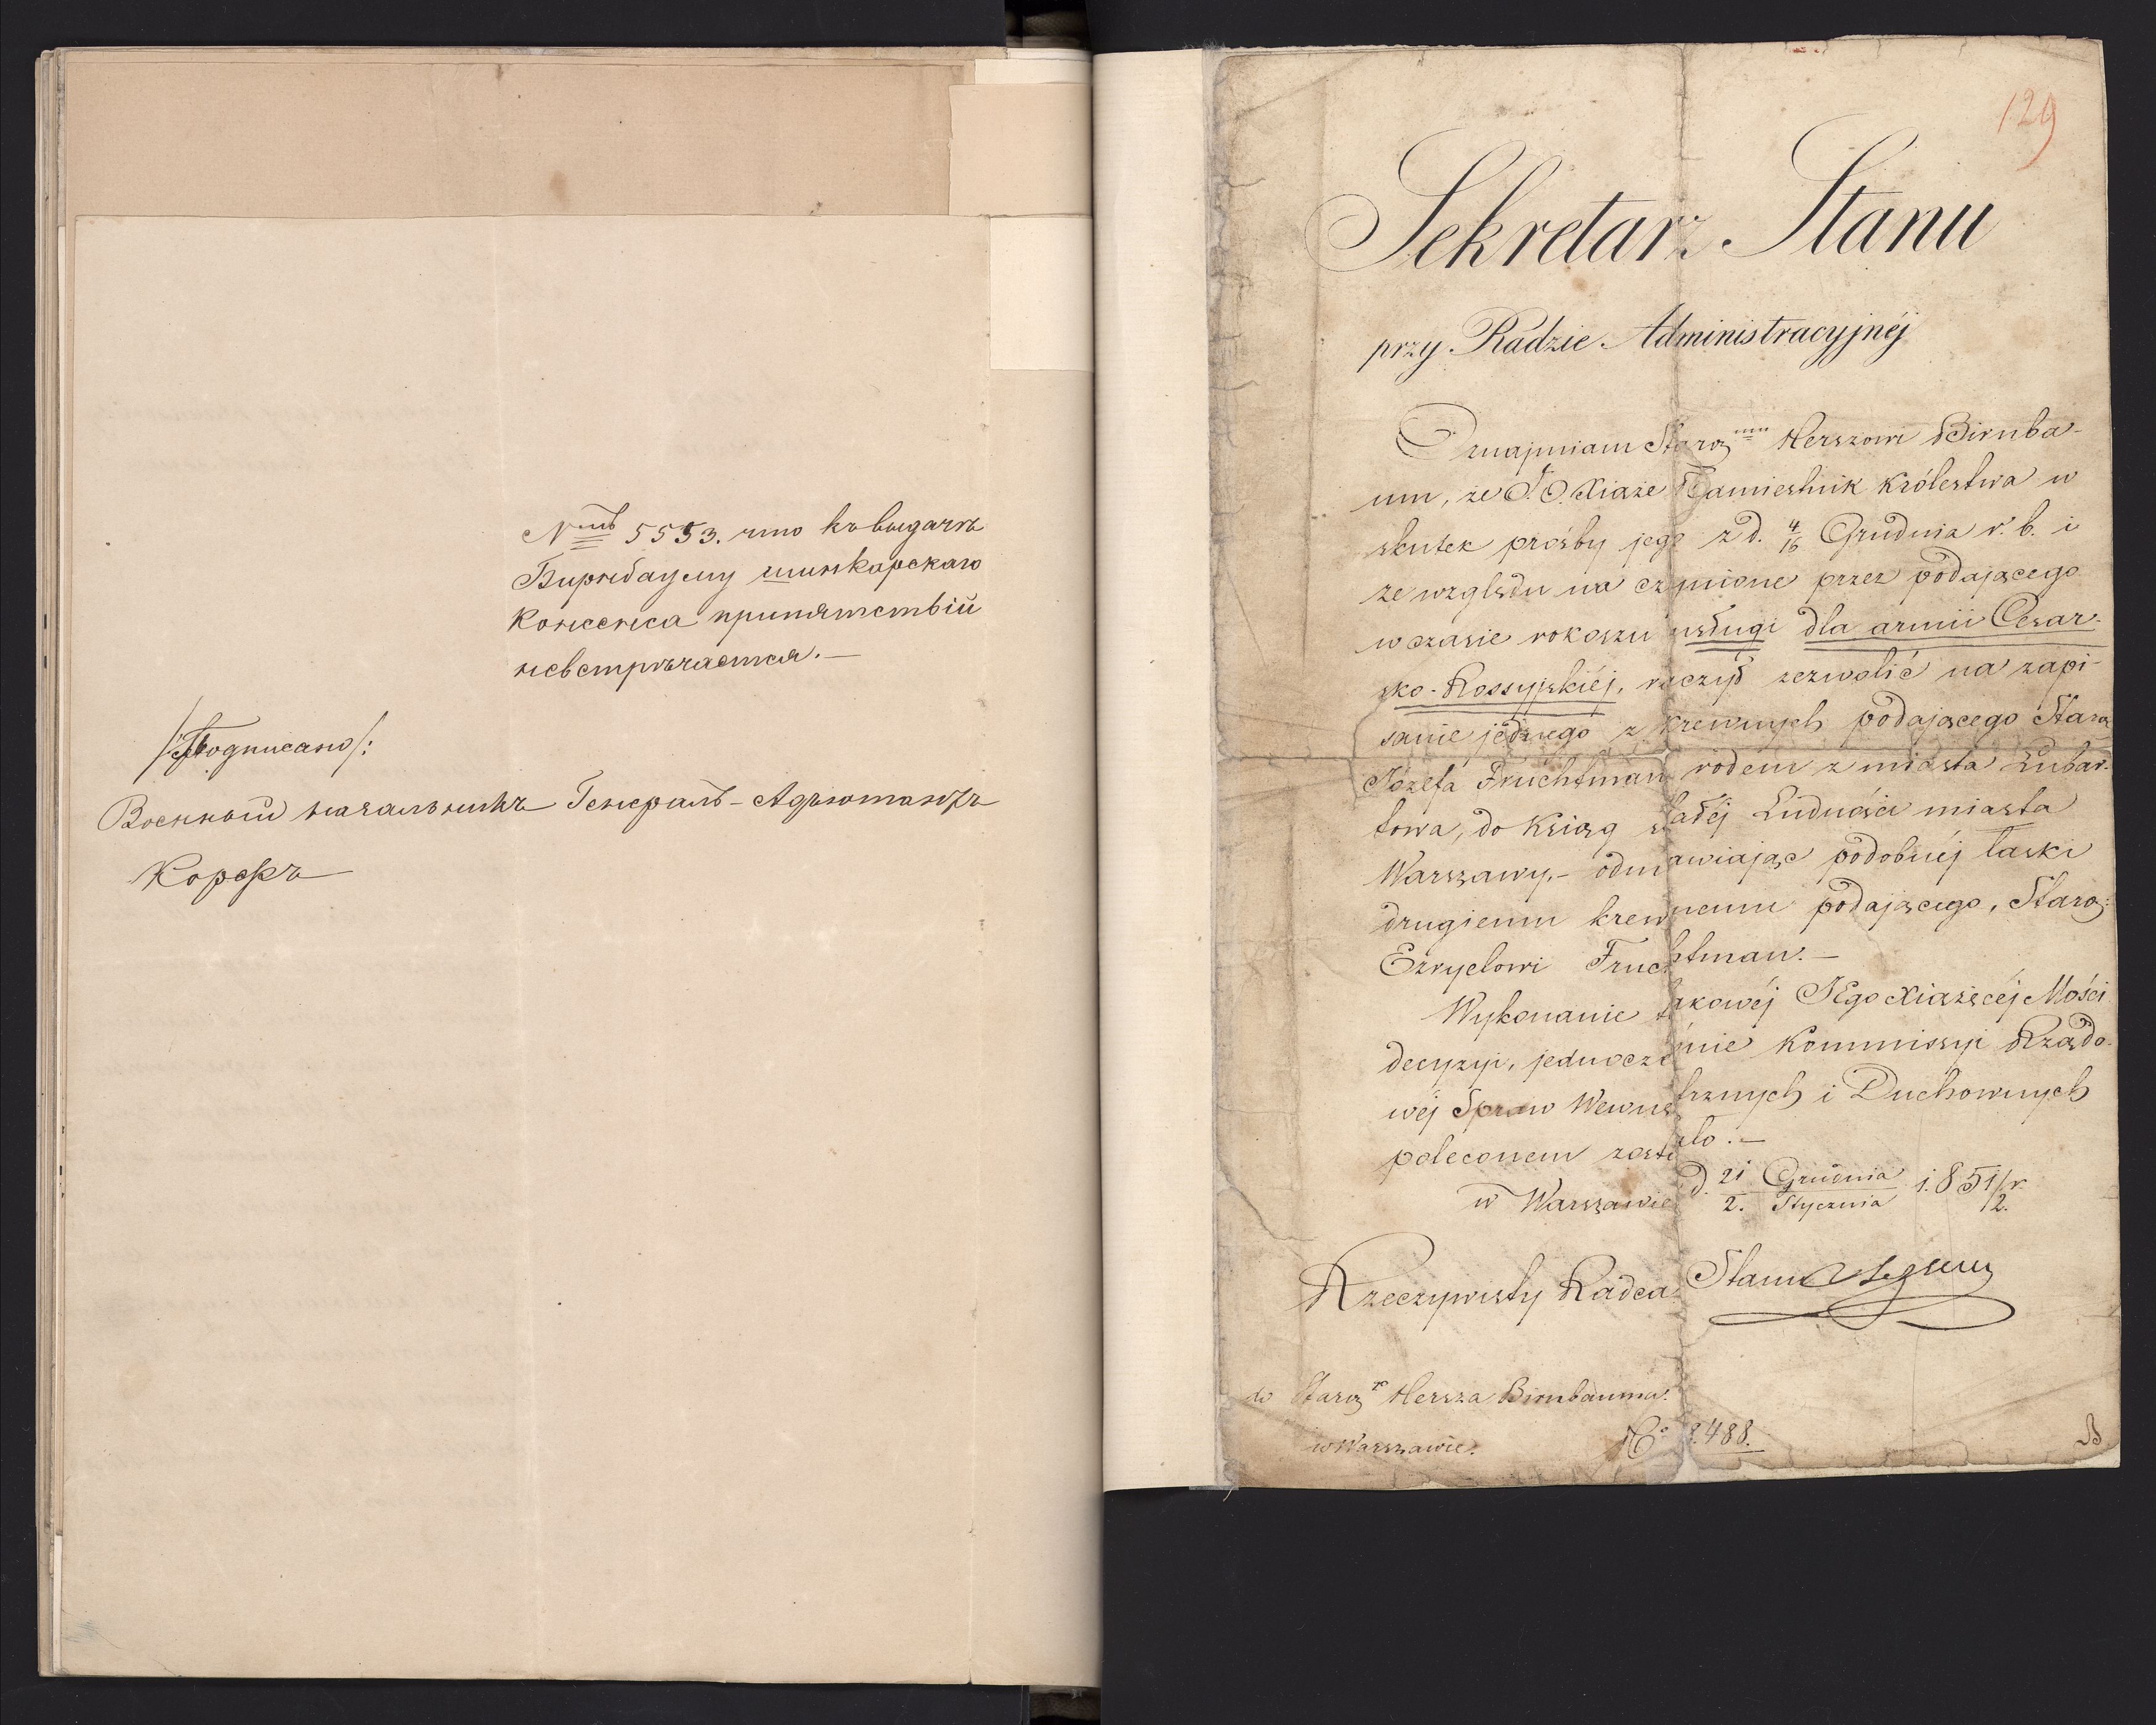 № 5553. что къ выдачѣ
Бирнбауму шинкарскаго
консенса припятствій
невстрѣчается.—
/:Подписано/:
Военный начальникъ Генералъ-Адъютантъ
Корфъ
129
Sekretarz Stanu
przy Radzie Administracyjnéj
Oznajmiam Staroz. mu Herszowi Birnba-
um, że J.O. Xiąże Namiestnik Królestwa w
skutek prośby jego z d. 4/16 Grudnia r. b. i
ze względu na czynione przez podającego
w czasie rokoszu usługi dla armii Cesar-
sko-Rossyjskiéj, raczył zezwolić na zapi-
sanie jednego z krewnych podającego Staroz.
Józefa Fruchtman rodem z miasta Lubar-
towa, do Ksiąg stałéj Ludności miasta
Warszawy,- odmawiając podobnéj łaski
drugiemu krewnemu podającego, Staroz:
Ezryelowi Fruchtman.—
Wykonanie takowéj JEgo Xiążęcéj Mości
decyzyi, jednocześnie Kommissyi Rządo-
wéj Spraw Wewnętrznych i Duchownych
poleconem zostało.—
w Warszawie d. 21 Grudnia / 2. Stycznia 1851/2 r.
Rzeczywisty Radca Stanu
do Staroz. Hersza Birnbauma.
w Warszawie. No 2.488.